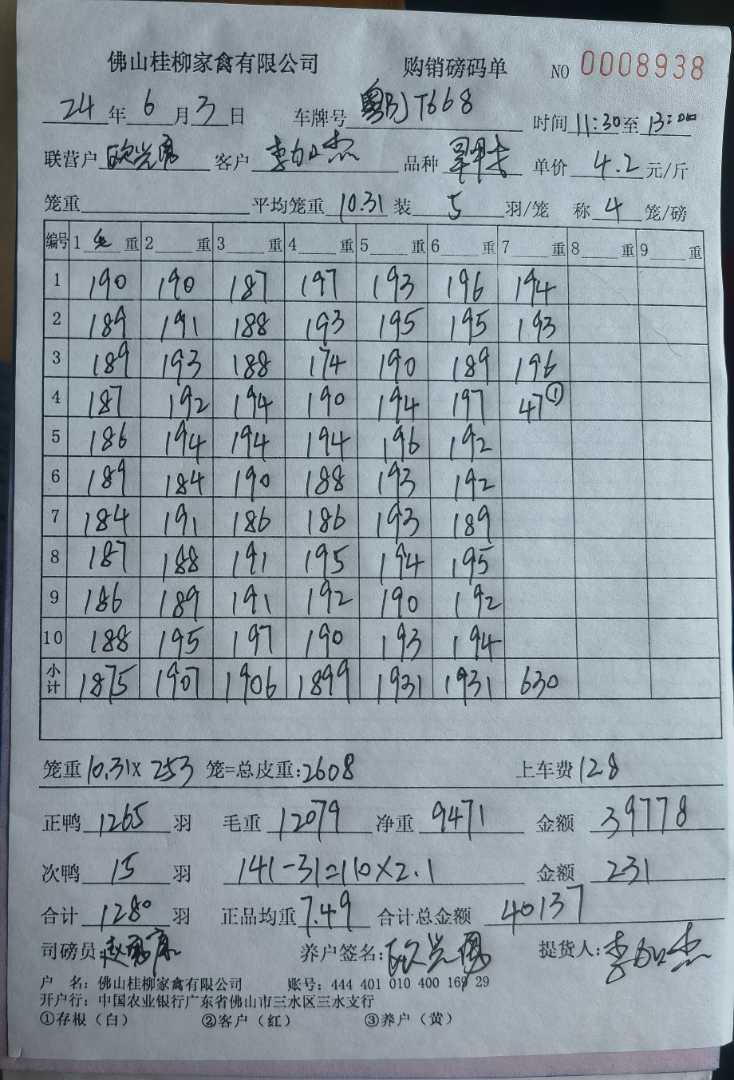 佛山桂柳家禽有限公司 购销磅码单 NO 0008938
24年6月3日 车牌号 粤BJT668 时间 11:30至13:00
联营户 客户 李 杰 品种 单价 4.2 元/斤
笼重 平均笼重 10.31 装 5 羽/笼 称 4 笼/磅
编号 1 毛 重 2 重 3 重 4 重 5 重 6 重 7 重 8 重 9 重
1 190 190 187 197 193 196 194
2 189 191 188 193 195 195 193
3 189 193 188 174 190 189 196
4 187 192 194 190 194 197 47①
5 186 194 194 194 196 192
6 189 184 190 188 193 192
7 184 191 186 186 193 189
8 187 188 191 195 194 195
9 186 189 191 192 190 192
10 188 195 197 190 193 194
小计 1875 1907 1906 1899 1931 1931 630
笼重 10.31× 253 笼=总皮重:2608 上车费 128
正鸭 1265 羽 毛重 12079 净重 9471 金额 39778
次鸭 15 羽 141-31=110×2.1 金额 231
合计 1280 羽 正品均重 7.49 合计总金额 40137
司磅员: 养户签名: 提货人: 李 杰
户 名: 佛山桂柳家禽有限公司 账号: 444 401 010 400 169 29
开户行: 中国农业银行广东省佛山市三水区三水支行
①存根（白） ②客户（红） ③养户（黄）